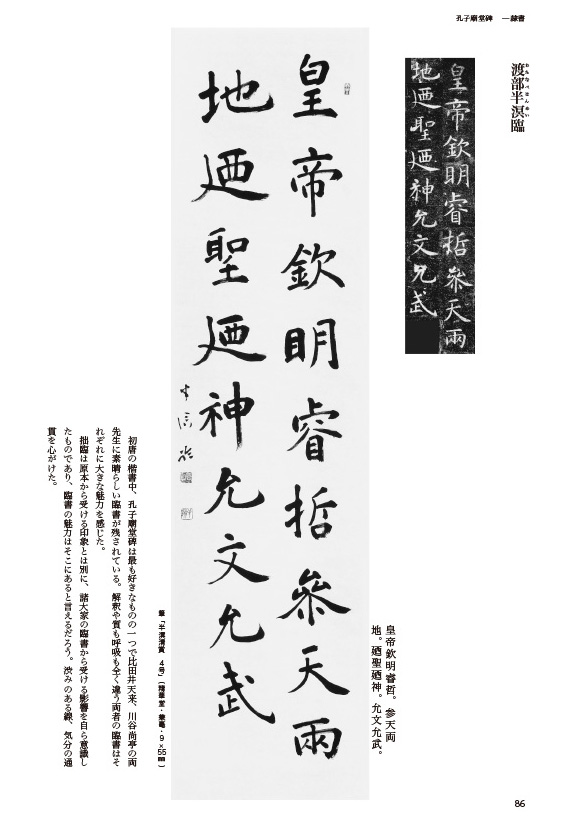 孔子廟堂碑　—隷書
渡部半溟臨
わたなべはんめい
皇帝欽明睿哲參天兩
地廼聖廼神允文允武
皇帝欽明睿哲參天兩
地廼聖廼神允文允武
半溟臨
皇帝欽明睿哲。参天両
地。廼聖廼神。允文允武。
筆「半溟清賞　4号」（精華堂・兼毫・9×55㎜）
初唐の楷書中、孔子廟堂碑は最も好きなものの一つで比田井天来、川谷尚亭の両
先生に素晴らしい臨書が残されている。解釈や質も呼吸も全く違う両者の臨書はそ
れぞれに大きな魅力を感じた。
拙臨は原本から受ける印象とは別に、諸大家の臨書から受ける影響を自ら意識し
たものであり、臨書の魅力はそこにあると言えるだろう。渋みのある線、気分の通
貫を心がけた。
86